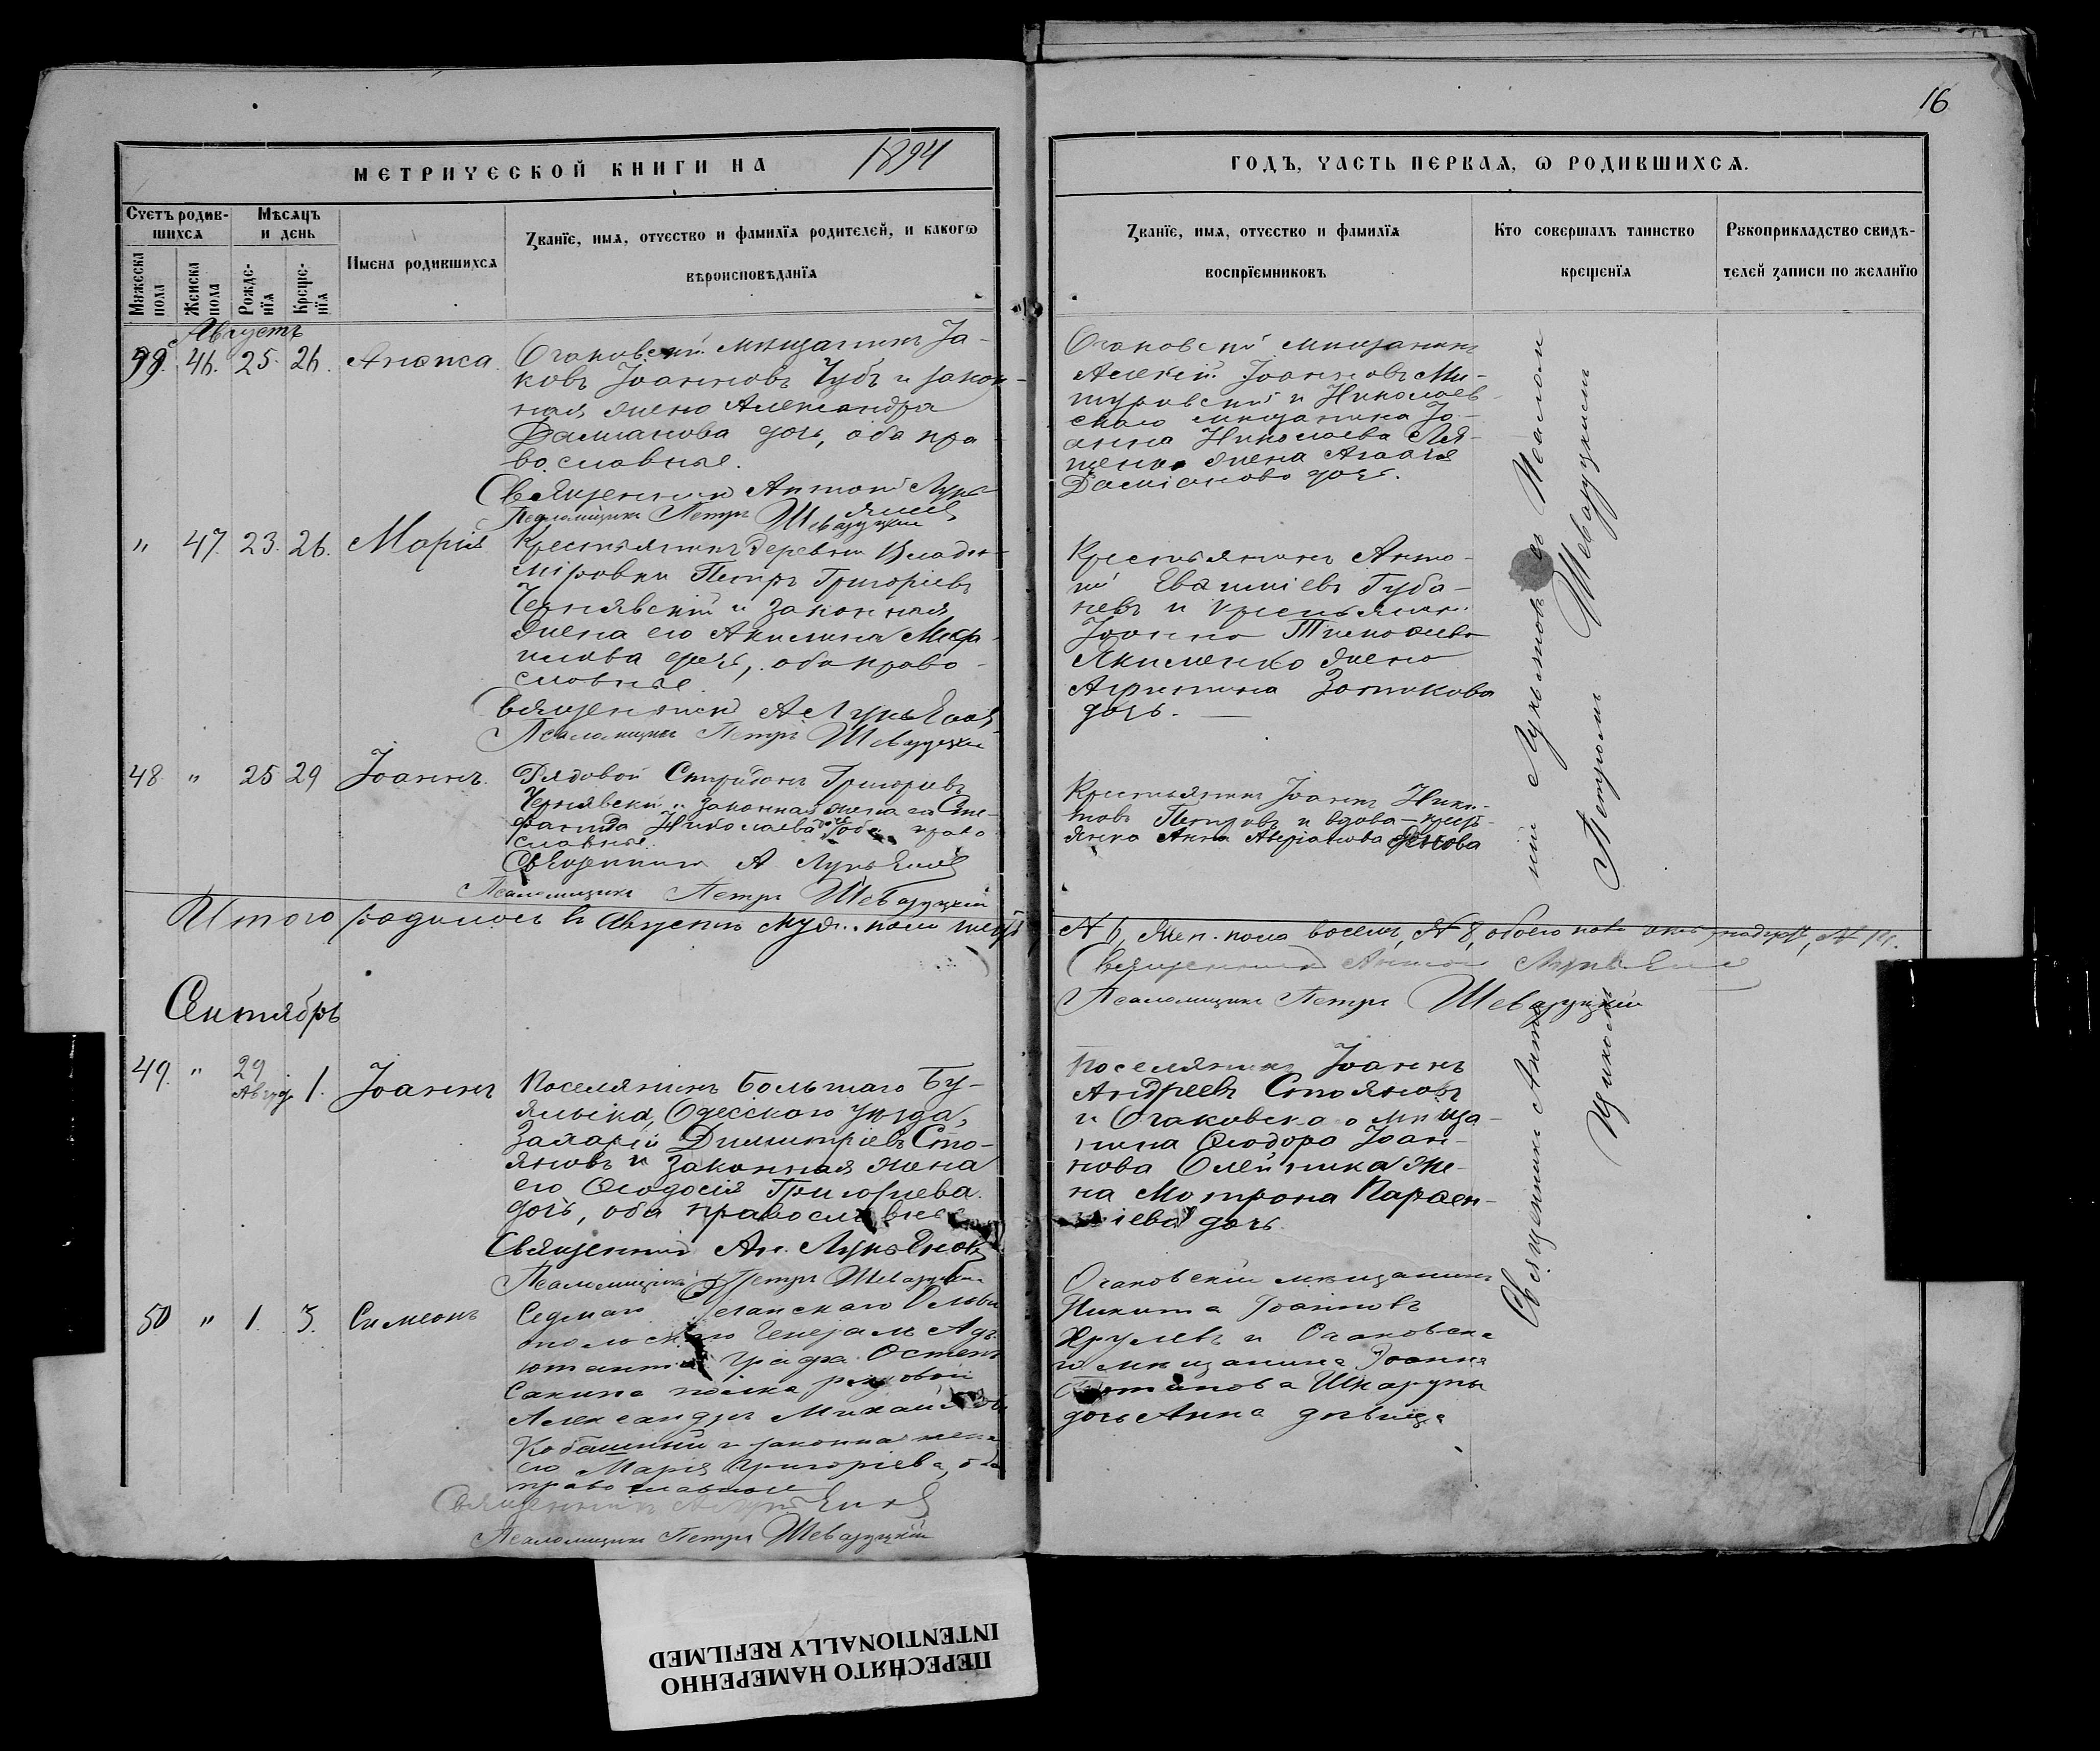 16
МЕТРИЧЕСКОЙ КНИГИ НА 1894
ГОДЪ, ЧАСТЬ ПЕРВАЯ, Ѡ РОДИВШИХСЯ.
Счетъ родив-
шихся
Мѣсяцъ
и день
Мужеска
пола
Женска
пола
Рожде-
нїя
Креще-
нїя
Имена родившихся
Званїе, имя, отчество и фамилїя родителей, и какогѡ
вѣроисповѣданїя
Званїе, имя, отчество и фамилїя
воспрїемниковъ
Кто совершалъ таинство
крещенїя
Рукоприкладство свидѣ-
телей записи по желанїю
Августъ
46. 25. 26.
Очаковскій мѣщанинъ Іа-
ковъ Іоанновъ Чубъ и закон-
ная жена Александра
Даміанова дочь, оба пра-
вославные.
Священникъ Антоній Лукь-
яновъ
Псаломщикъ Петръ Шеваруцкій
Очаковскій мѣщанинъ
Алексій Іоанновъ Ми-
туровскій и Николаев-
скаго мѣщанина Іо-
анна Николаева Ля-
щенко жена Агаѳія
Даміанова дочь.
" 47. 23. 26. Марія
Крестьянинъ деревни Влади-
міровки Петръ Григоріевъ
Чернявскій и законная
жена его Акилина
дочь, оба право-
славные.
Священникъ А Лукьяновъ
Псаломщикъ Петръ Шеваруцкій
Крестьянинъ Анто-
ній Губа-
невъ и крестьянин.
Іоанна Тимоѳеева
Якименко жена
Агрипина
дочь.
48 " 25 29 Іоаннъ.
Рядовой Спиридонъ Григорьевъ
Чернявскій и законная жена его Сте-
фанида Николаева дочь, оба право
славные.
Священникъ А Лукьяновъ
Псаломщикъ Петръ Шеваруцкій
Крестьянинъ Іоаннъ Ники-
товъ Петровъ и вдова
Анна
Итого родилось въ Августѣ муж. пола шесть
№ 6, жен. пола восемь, № 8, обоего пола № 14.
Священникъ Антоній Лукьяновъ
Псаломщикъ Петръ Шеваруцкій
Сентябрь
49. " 29
Авгус. 1. Іоаннъ
Поселянинъ Большаго Бу-
ялыка, Одесскаго уѣзда,
Захарій Димитріевъ Сто-
яновъ и законная жена
его Ѳеодосія Григорьева
дочь, оба православные
Священникъ Ан. Лукьяновъ
Псаломщикъ Петръ Шеваруцкій
Поселянинъ Іоаннъ
Андреевъ Стояновъ
и Очаковскаго мѣща-
нина Ѳеодора Іоан-
нова Олейника же-
на Мотрона Парѳен-
тіева дочь
50 " 1. 3. Симеонъ
Седмаго Уланскаго Ольви
опольскаго Генералъ Адъ-
ютанта Графа Остенъ
Сакина полка рядовой
Александръ Михайловъ
и законная жена
его Марія Григоріева, оба
православные
Священникъ А Лукьяновъ
Псаломщикъ Петръ Шеваруцкій
Очаковскій мѣщанинъ
Никита Іоанновъ
Хрулевъ и Очаковска
го мѣщанина Іоанна
Шкарупы
дочь Анна дѣвица
Священникъ Антоній Лукьяновъ съ Псалом
щикомъ Петромъ Шеваруцкимъ
ПЕРЕСНЯТО НАМЕРЕННО
INTENTIONALLY REFILMED